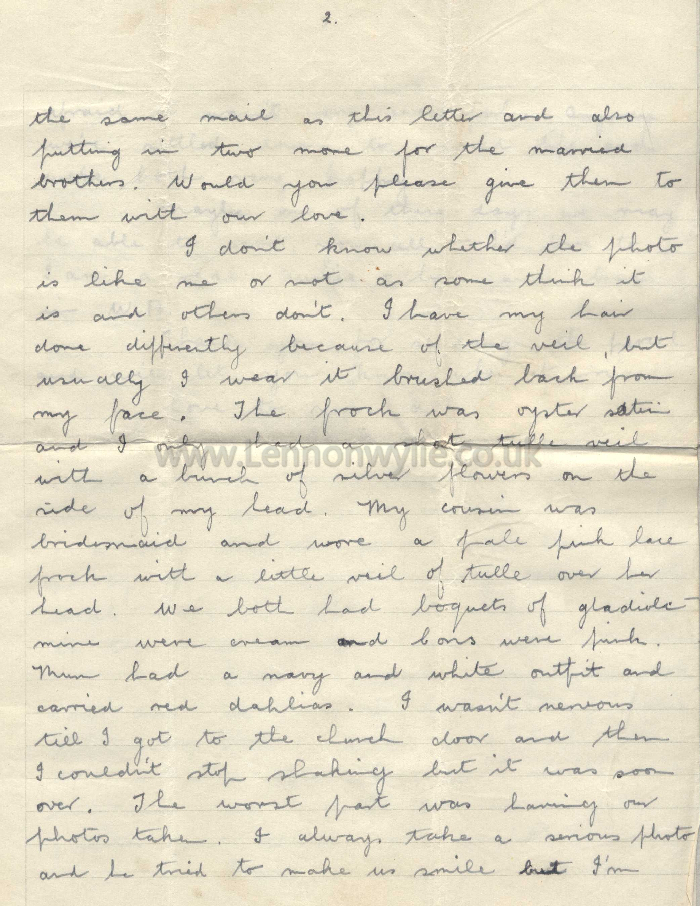 2.
the same mail as this letter and also
putting in two more for the married
brothers. Would you please give them to
them with our love.
I don't know whether the photo
is like me or not as some think it
is and others don't. I have my hair
done differently because of the veil, but
usually I wear it brushed back from
my face. The frock was oyster satin
and I only had a short tulle veil
www.Lennonwylie.co.uk
with a bunch of silver flowers on the
side of my head. My cousin was
bridesmaid and wore a pale pink lace
frock with a little veil of tulle over her
head. We both had boquets of gladiole
mine were cream and Lons were pink.
Mum had a navy and white outfit and
carried red dahlias. I wasn't nervous
till I got to the church door and then
I couldn't stop shaking but it was soon
over. The worst part was having our
photos taken. I always take a serious photo
and he tried to make us smile but I'm